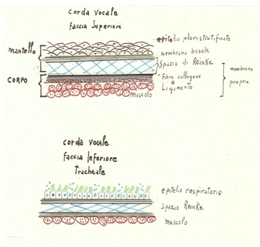 corda vocale
Faccia Superiore
mantello
CORPO
epitelio pluristratificato
membrana basale
Spazio di Reinke
Fibre collagene
Ligamento
muscolo
membrana
propria
corda vocale
Faccia Inferiore
Tracheale
epitelio respiratorio
spazio Reinke
muscolo